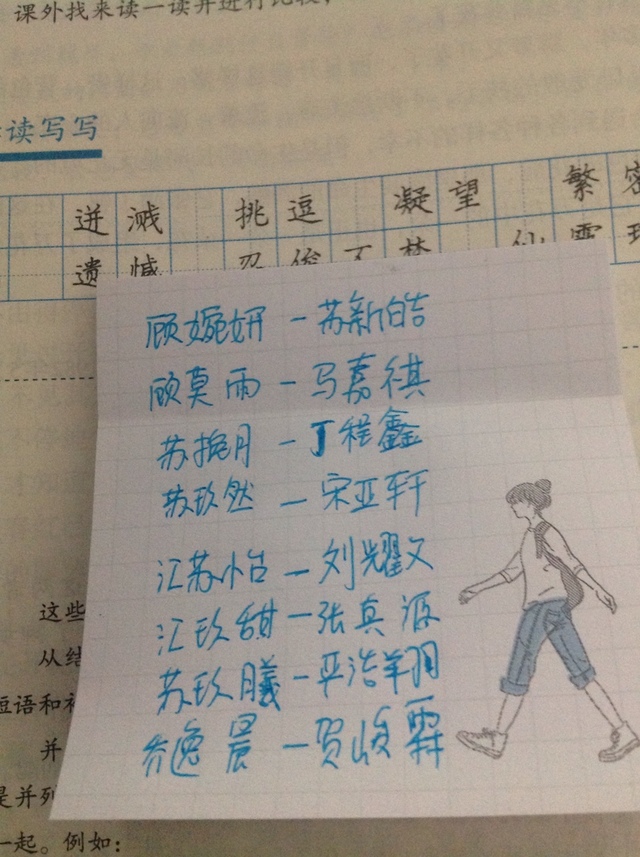 课外找来读一读并进行比较，
读写写
迸溅 挑逗 凝望 繁密
遗憾 忍俊不禁 仙露琼
顾婉妍－苏新皓
顾莫雨－马嘉祺
苏挽月－丁程鑫
苏玖然－宋亚轩
江苏怡－刘耀文
江玖甜－张真源
苏玖曦－严浩翔
乔逸晨－贺峻霖
这些
从结
短语和
并
是并列
一起。例如：